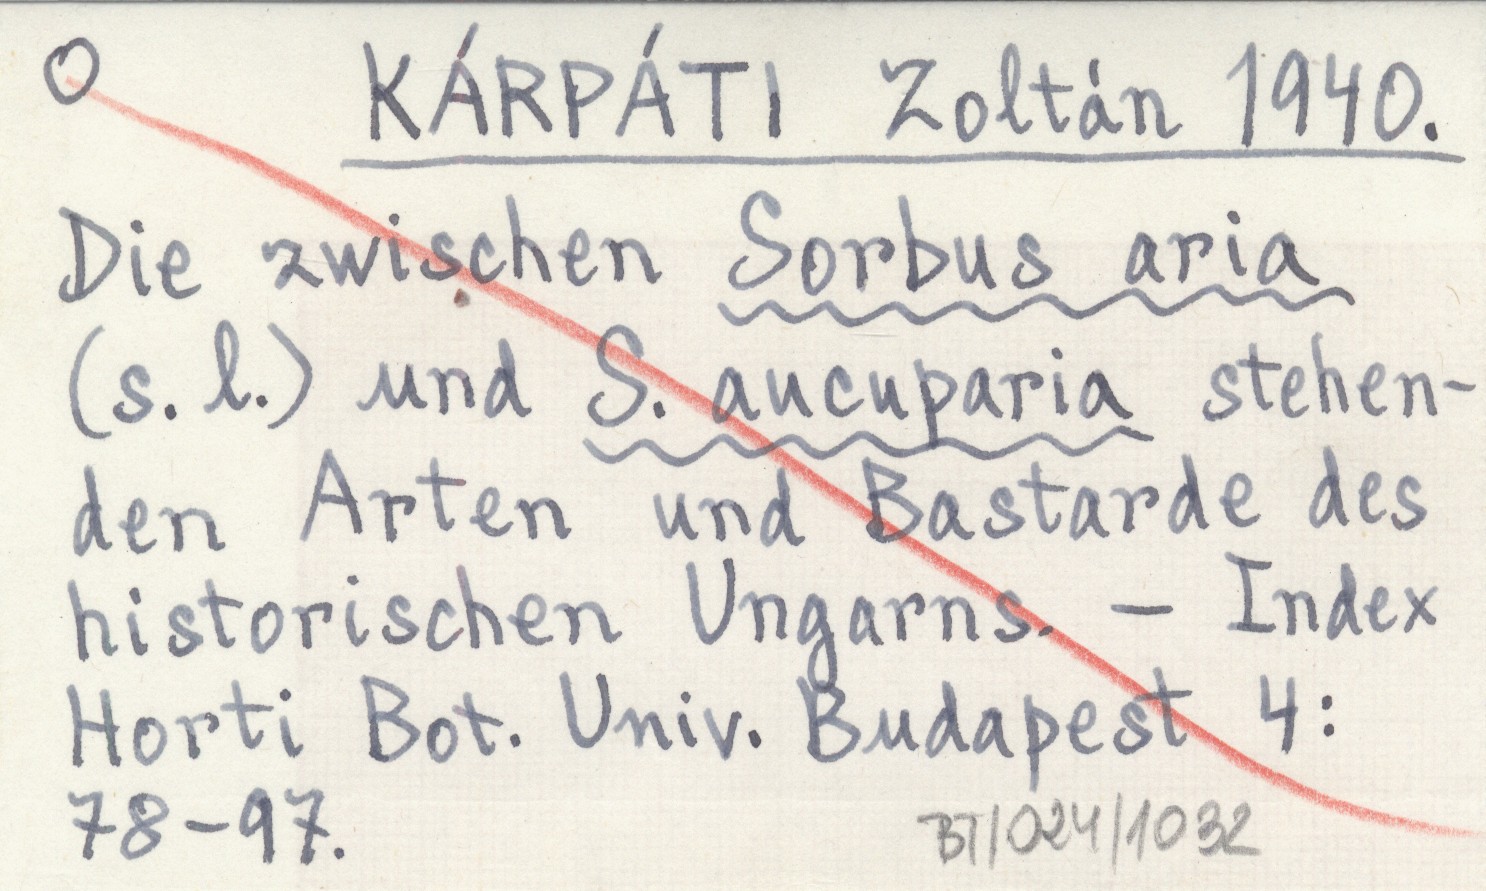 O KÁRPÁTI Zoltán 1940.
Die zwischen Sorbus aria
(s. l.) und S. aucuparia stehen-
den Arten und Bastarde des
historischen Ungarns. — Index
Horti Bot. Univ. Budapest 4:
78-97.
BT/024/1032